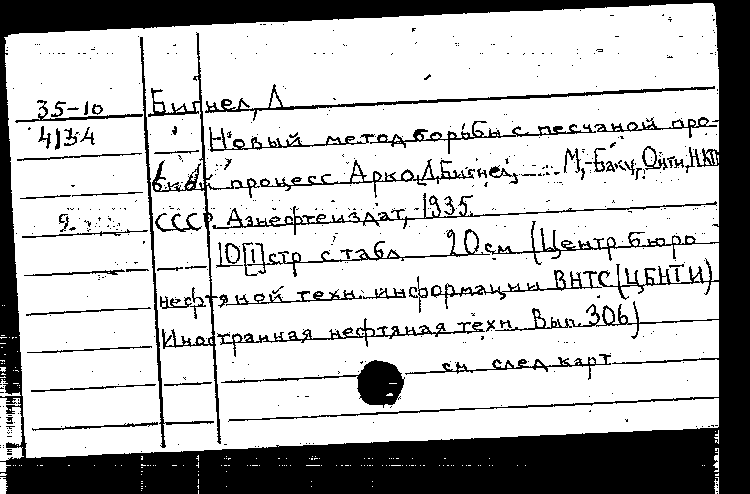 35-10 Бигнел, Д
4134 Новый метод борьбы с песчаной про-
бкой процесс Арко, Д. Бигнел, М,-Баку, Онти, НКТП
9. СССР. Азнефтеиздат, 1935.
10[1]стр с табл 20см (Центр бюро
нефтяной техн. информации ВНТС (ЦБНТИ)
Иностранная нефтяная техн. Вып. 306)
см след карт